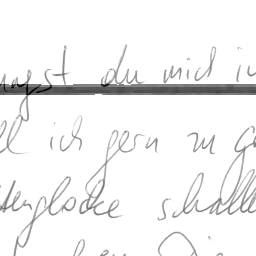 ngst du mich in
ll ich gern zu G
tenglocke schalle